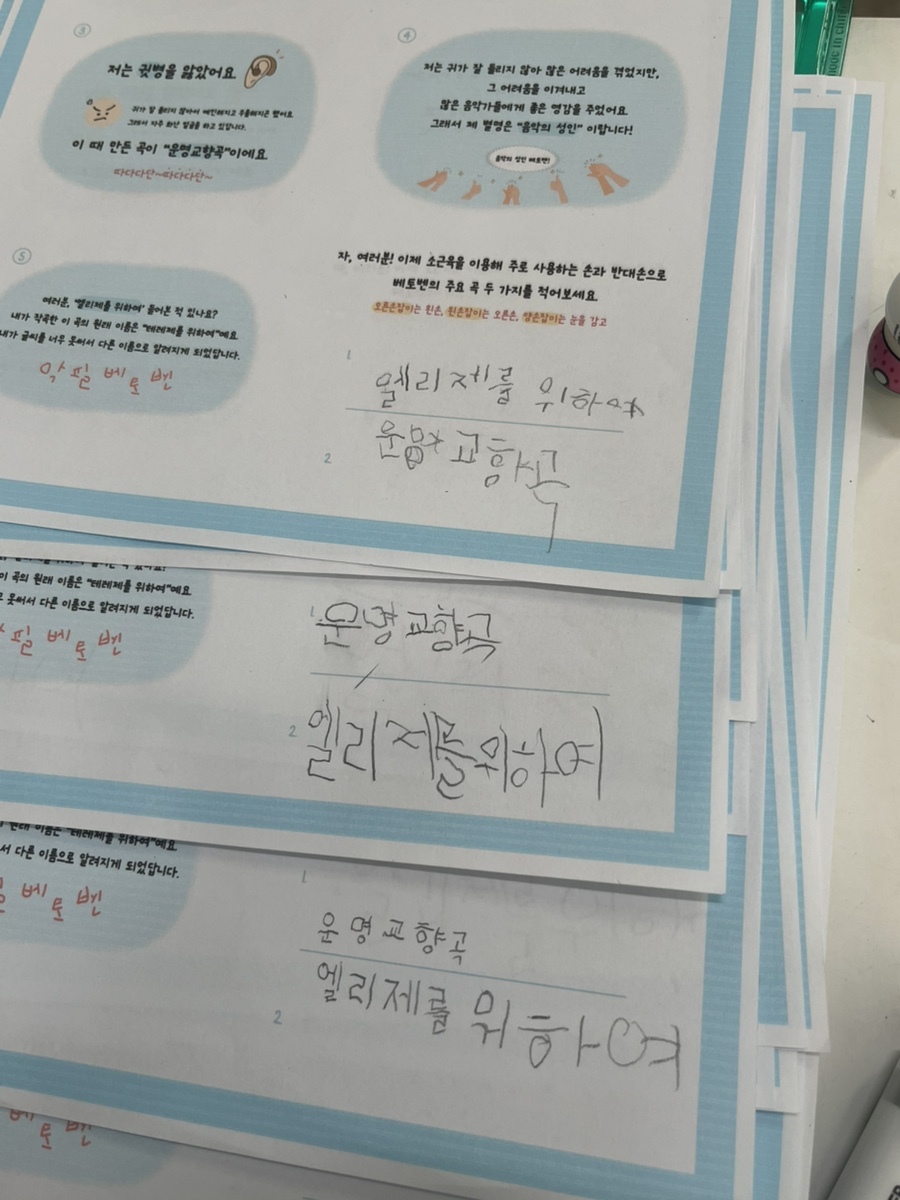 ③
저는 귓병을 앓았어요
귀가 잘 들리지 않아서 예민해지고 우울해지곤 했어요
그래서 자주 화난 얼굴을 하고 있답니다.
이 때 만든 곡이 "운명교향곡"이에요
따다다단~따다다단~
④
저는 귀가 잘 들리지 않아 많은 어려움을 겪었지만,
그 어려움을 이겨내고
많은 음악가들에게 좋은 영감을 주었어요
그래서 제 별명은 "음악의 성인" 이랍니다!
음악의 성인 베토벤!
⑤
여러분, '엘리제를 위하여' 들어본 적 있나요?
내가 작곡한 이 곡의 원래 이름은 "테레제를 위하여"예요
내가 글씨를 너무 못써서 다른 이름으로 알려지게 되었답니다.
악필 베토벤
자, 여러분! 이제 소근육을 이용해 주로 사용하는 손과 반대손으로
베토벤의 주요 곡 두 가지를 적어보세요
오른손잡이는 왼손, 왼손잡이는 오른손, 양손잡이는 눈을 감고
1 엘리제를 위하여
2 운명교향곡
이 곡의 원래 이름은 "테레제를 위하여"예요
못써서 다른 이름으로 알려지게 되었답니다.
필 베토벤
1 운명교향곡
2 엘리제를위하여
원래 이름은 "테레제를 위하여"예요
서 다른 이름으로 알려지게 되었답니다.
베토벤
1 운명교향곡
2 엘리제를 위하여
베토벤